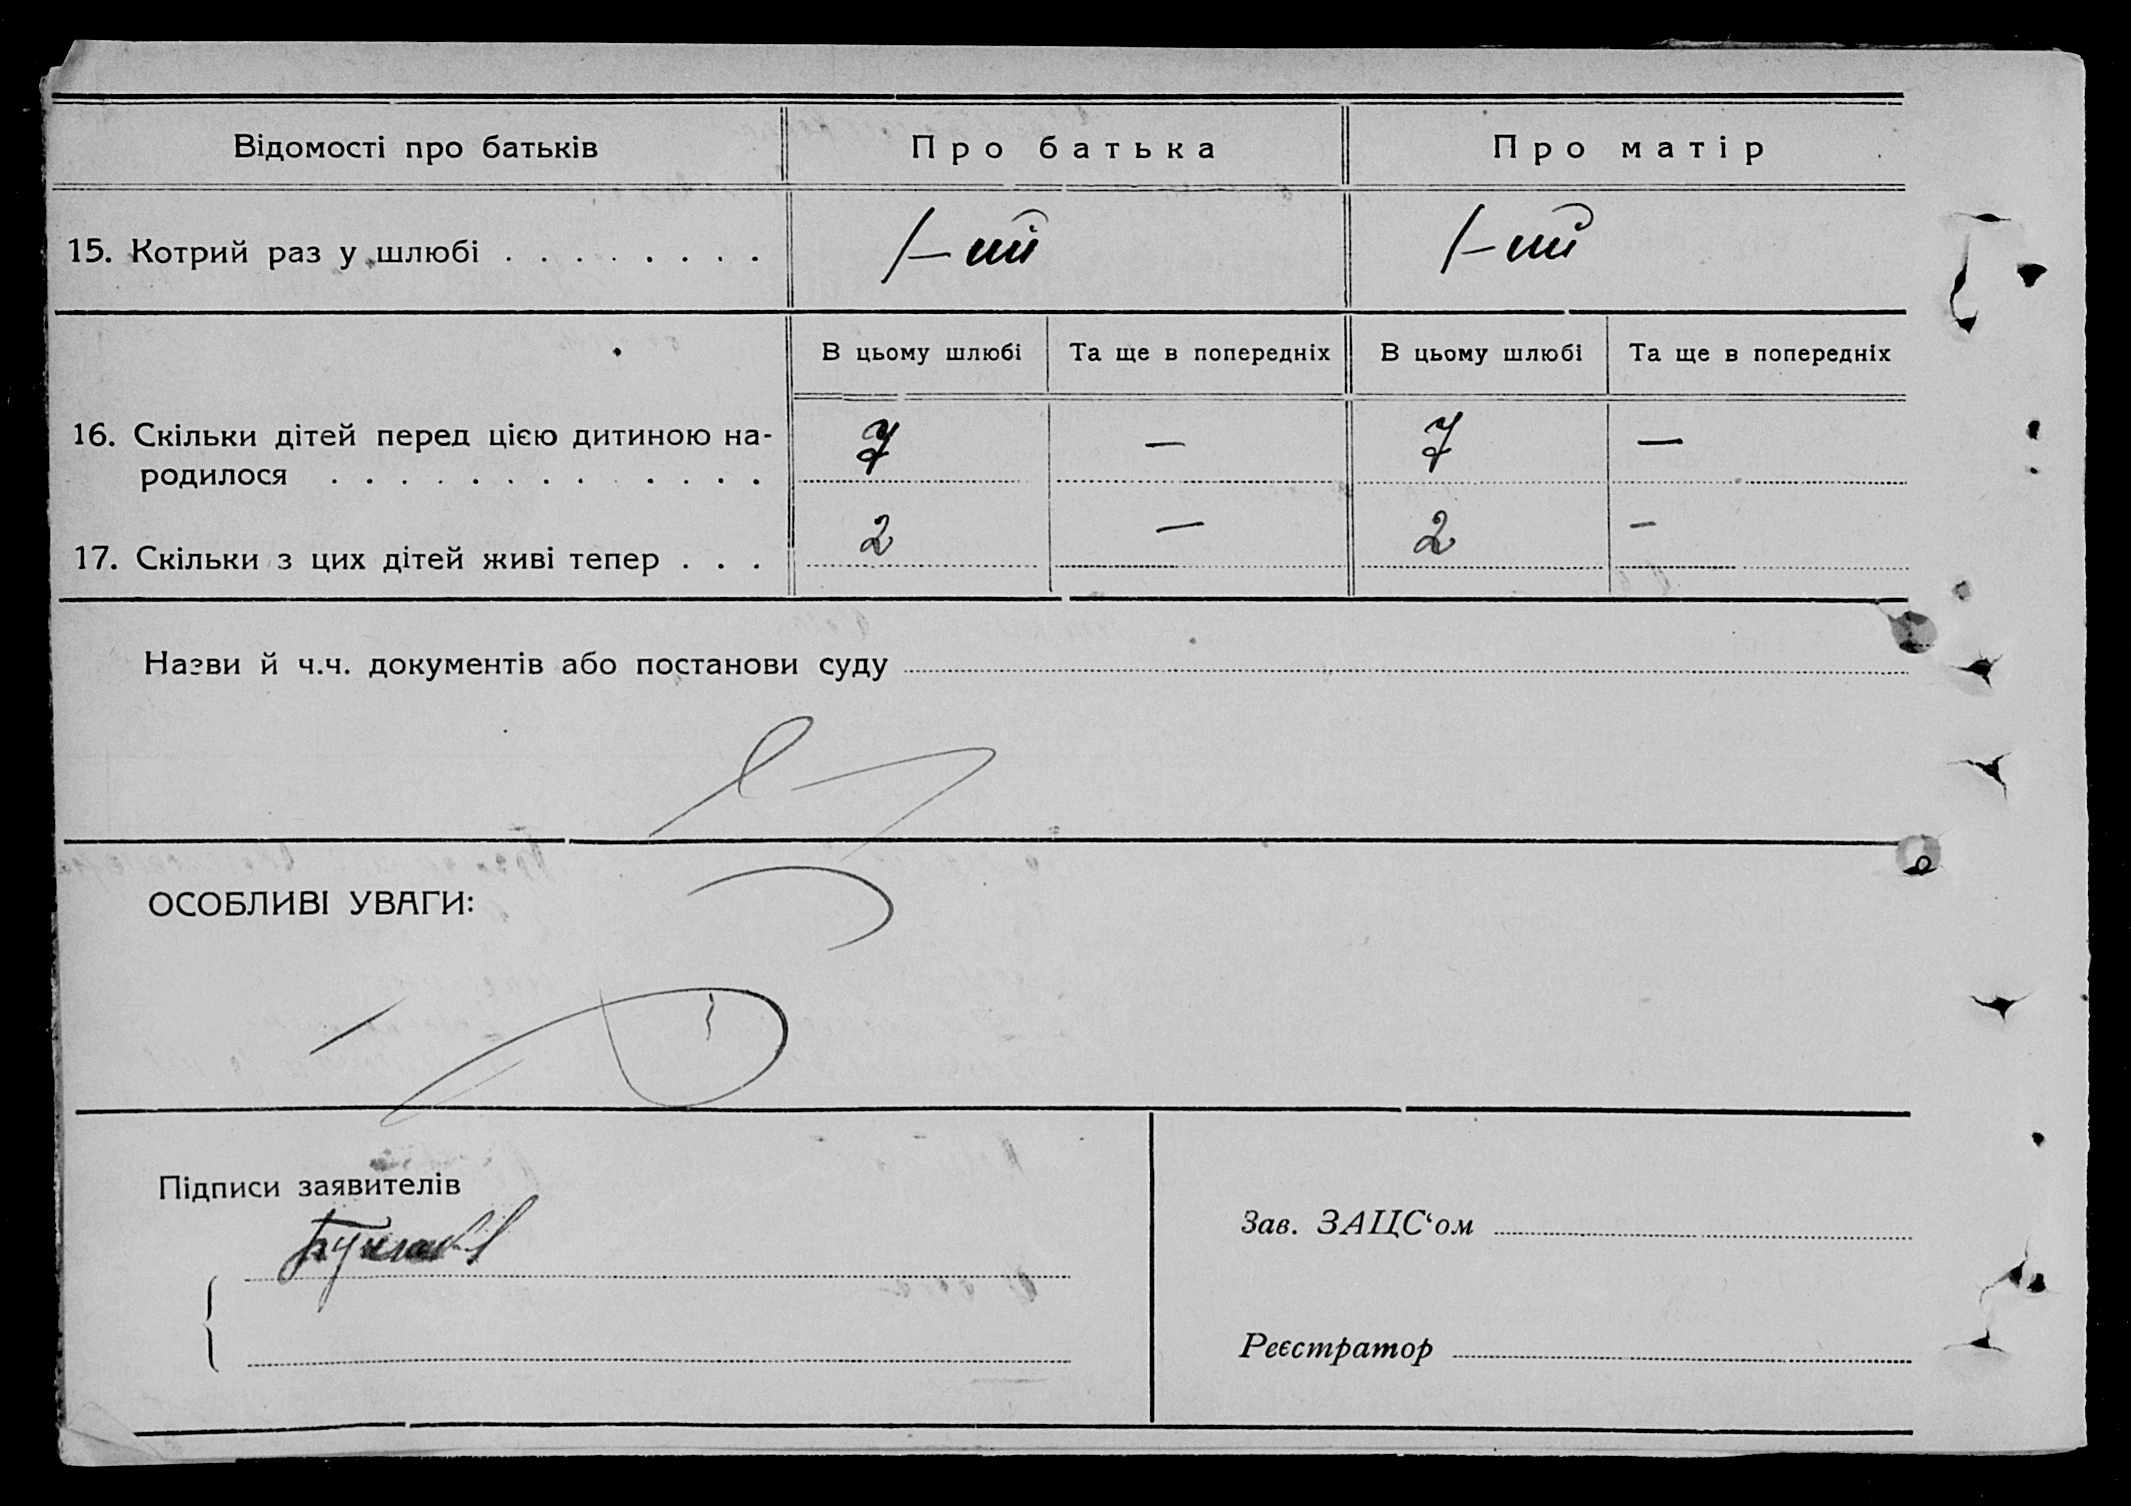 Відомості про батьків Про батька Про матір
15. Котрий раз у шлюбі . . . . . . . . 1-ий 1-ий
В цьому шлюбі Та ще в попередніх В цьому шлюбі Та ще в попередніх
16. Скільки дітей перед цією дитиною на- 7 — 7 —
родилося . . . . . . . . . . . . .
17. Скільки з цих дітей живі тепер . . . 2 — 2 —
Назви й ч.ч. документів або постанови суду
ОСОБЛИВІ УВАГИ:
Підписи заявителів
Зав. ЗАЦС‘ом
Реєстратор